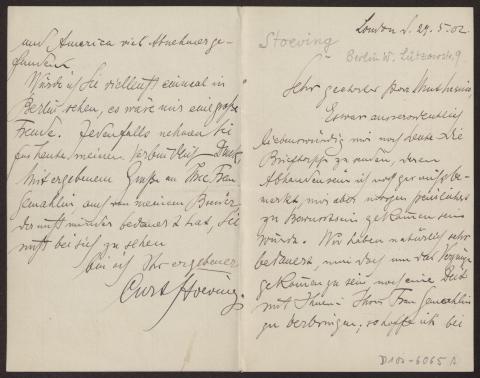 London d. 29.5.02.
Stoeving
Berlin W. Lützowstr. 9
Sehr geehrter Herr Muthesius,
Es war ausserordentlich
liebenswürdig mir noch heute die
zu senden, deren
Abhandensein ich noch gar nicht be-
merkt, mir aber morgen peinlichst
zu Bewusstsein gekommen sein
würde. Wir haben natürlich sehr
bedauert, nun doch um das Vergnügen
gekommen zu sein noch eine Zeit
mit Ihnen Ihrer Frau Gemahlin
zu verbringen; so hoffe ich bei
D 102-6065 A
und America viel Abnehmer ge-
funden.
Würde ich Sie vielleicht einmal in
Berlin sehen, es wäre mir eine große
Freude. Jedenfalls nehmen Sie
für heute meinen verbindlichst Dank,
mit ergebenem Gruße an Ihre Frau
Gemahlin auch von meinem Bruder
der nicht minder bedauert hat, Sie
nicht bei sich zu sehen
bin ich Ihr ergebener
Curt Stoeving.